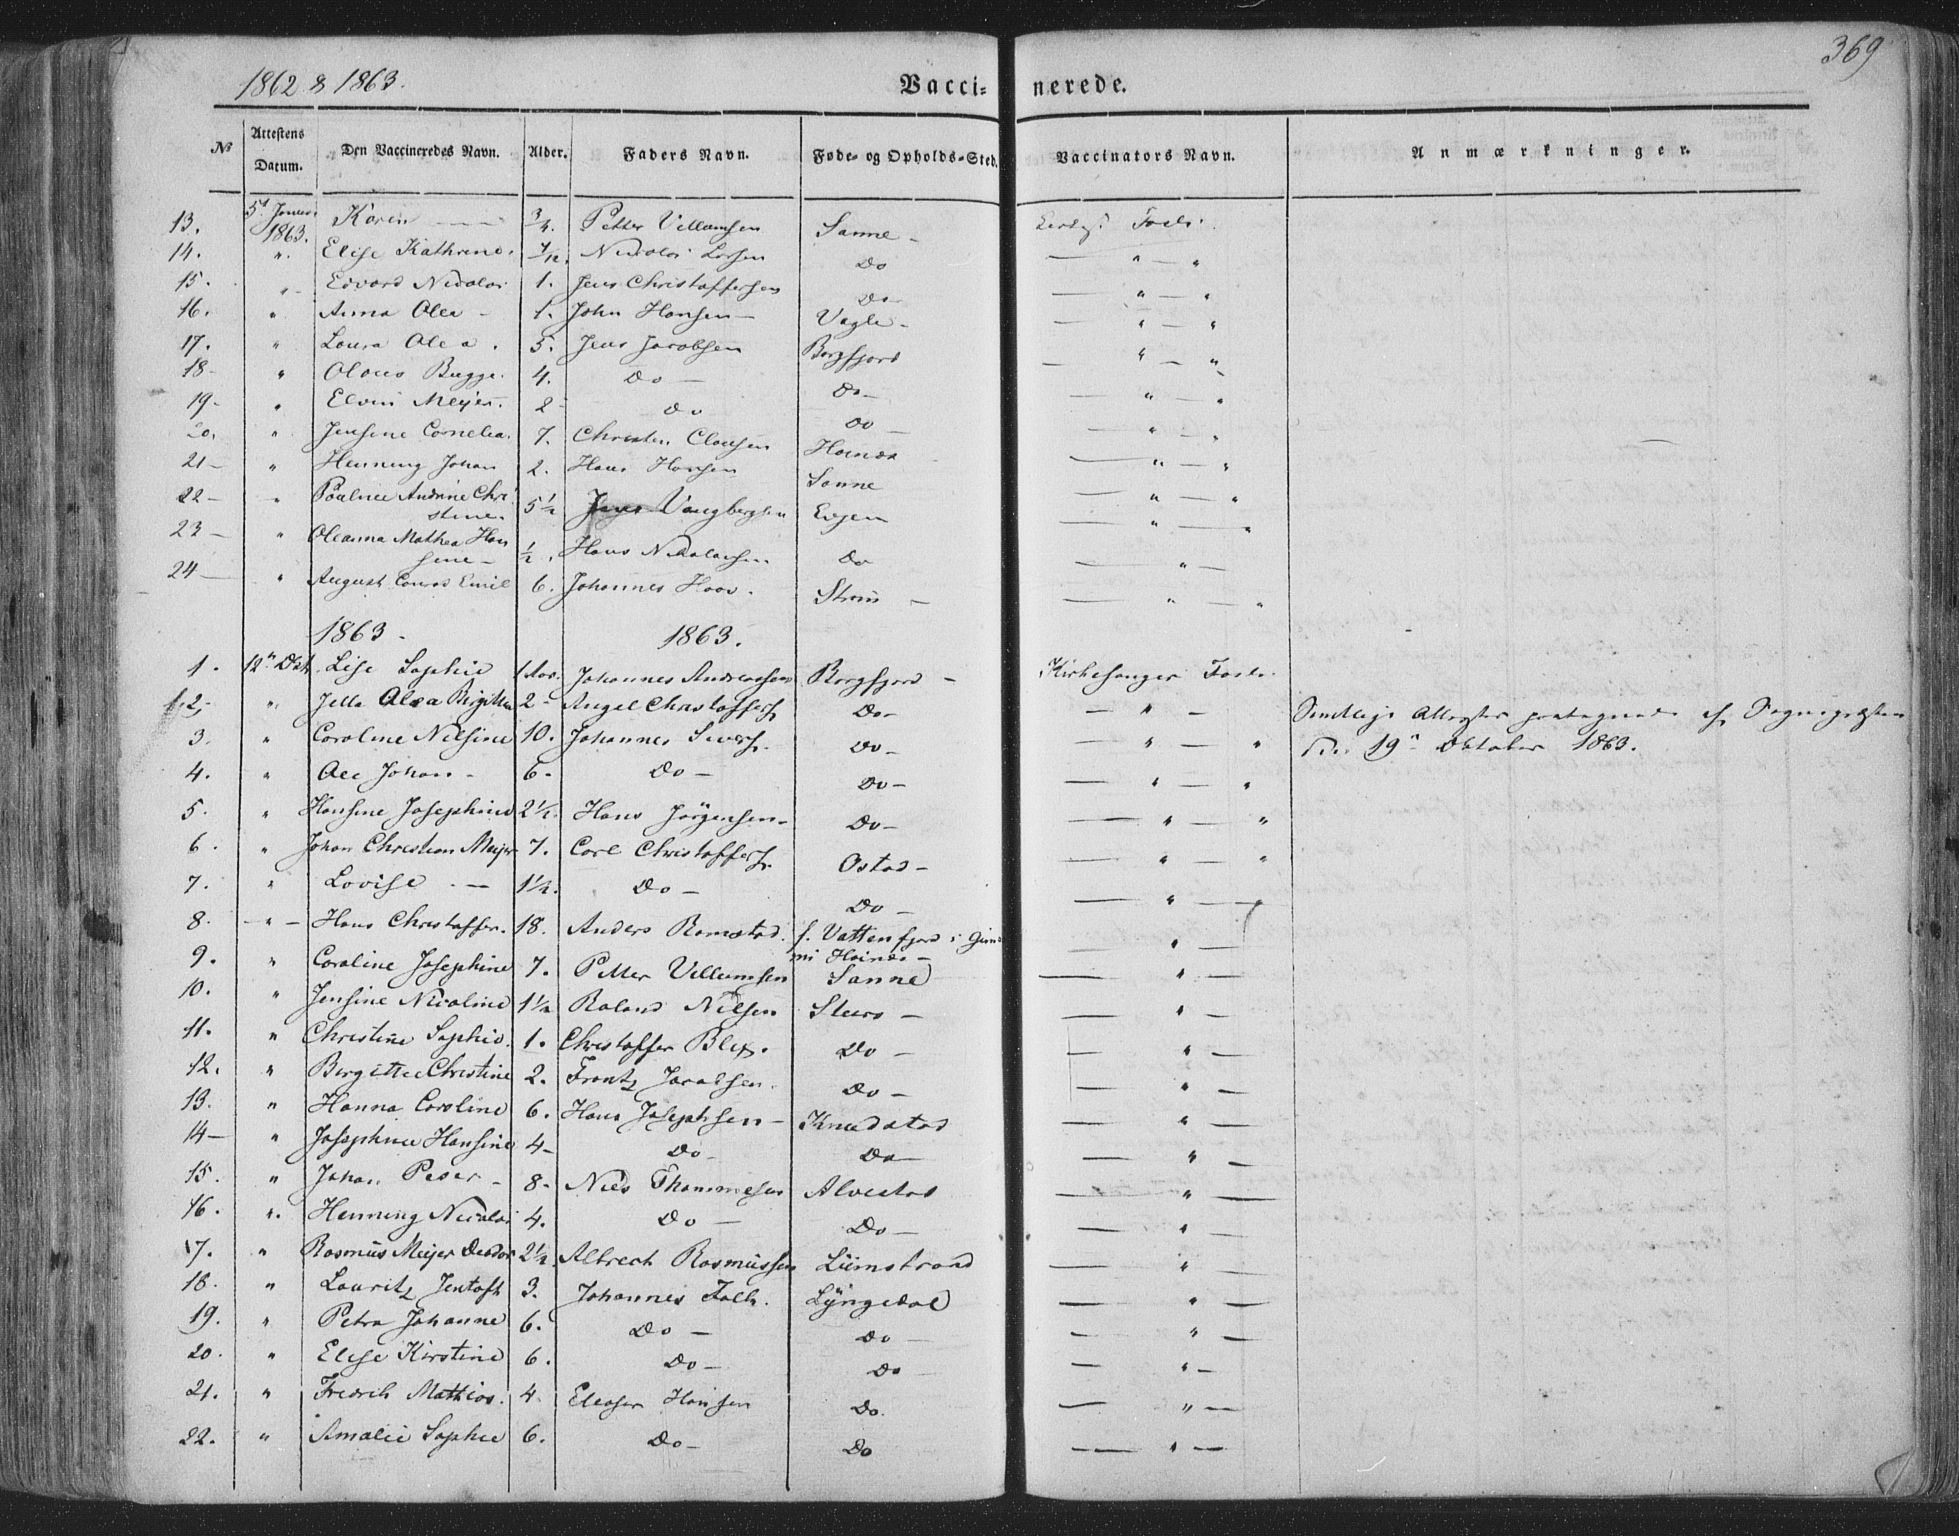 369
1862 & 1863.
Vacci- nerede.
№ Attestens Datum. Den Vaccineredes Navn. Alder. Faders Navn. Føde- og Opholds-Sted. Vaccinators Navn. Anmærkninger.
13. 5t 1863. Karen — 3/4. Petter Villumsen Sanne -
14. " Elise Kathrine. 7/12. Nicolai Larsen Do — " — "
15. " Edvard Nicolai 1. Jens Christoffersen Do — " — "
16. " Anna Olea - 1. John Hansen — Vagle - — " — "
17. " Laura Olea. 5. Jens Jacobsen Borgfjord — " — "
18 - " Olaus Bugge. 4. Do — Do — — " — "
19 - " Meyer. 2 - Do Do — — " — "
20. " Jensine Cornelia. 7. Christen Clausen — " — "
21 — " Henning Johan 2. Hans Hansen Sanne — " — "
22 — " Pauline Andrine Chri
stine. 5½ Jens Evjen — " — "
23 — " Oleanna Mathea Han
sine — ½. Hans Nikolaisen Do — " —
24 — " August Conrad Emil 6. Johannes — " — "
1863 - 1863.
1. 12te Lise Sophie 1 Aar. Johannes Andreassen Borgfjord — Kirkesanger
2. " Olea Birgitta 2 - Christoffers. Do — — " —
3. " Caroline Nilsine 10. Johannes Sivers. Do — — " — "
19de Oktober 1863.
4. " Ole Johan - 6. Do — Do — — " — "
5. " Hansine Josephine 2½. Hans Jörgensen - Do — — " — "
6. " Johan Christian Meyer 7. Carl Christoffers. Ostad — — " — "
7. " Lovise — 1½. Do — Do — — " —
8. — " — Hans Christoffer. 18. Anders Ramstad. f. Vattenfjord i
— " —
9. " Caroline Josephine 7. Petter Villumsen Sanne — " —
10. " Jensine Nicoline 1½ Roland Nilsen — " —
11. " Christine Sophie. 1. Christoffer Blix. Do — — " —
12. " Birgitte Christine 2. Frantz Jacobsen. Do — — " —
13. " Hanna Caroline 6. Hans Josephsen — Knudstad — " —
14 — " Josephine Hansine 4 - Do — Do — — " —
15. " Johan Peder - 8 - Niels Thommesen Alvestad — " —
16. " Henning Nicolai 4. Do — Do — — " —
17. " Rasmus Meijer 2½ Albrech Rasmussen Liimstrand — " —
18. " Lauritz Jentoft 3. Johannes Falk. Lÿngedal — " —
19. " Petra Johanne 6. Do — Do — — " —
20. " Elise Kirstine 6. Do — Do — " —
21. " Fredrik Mathias. 4. Eleaser Hansen Do. — " —
22. " Amalie Sophie 6. Do — Do — " —